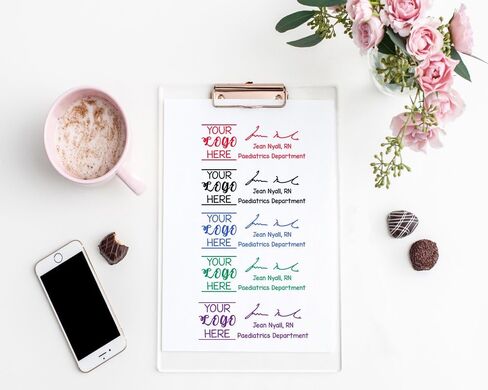 YOUR
LOGO
HERE
Jean Nyall, RN
Paediatrics Department
YOUR
LOGO
HERE
Jean Nyall, RN
Paediatrics Department
YOUR
LOGO
HERE
Jean Nyall, RN
Paediatrics Department
YOUR
LOGO
HERE
Jean Nyall, RN
Paediatrics Department
YOUR
LOGO
HERE
Jean Nyall, RN
Paediatrics Department